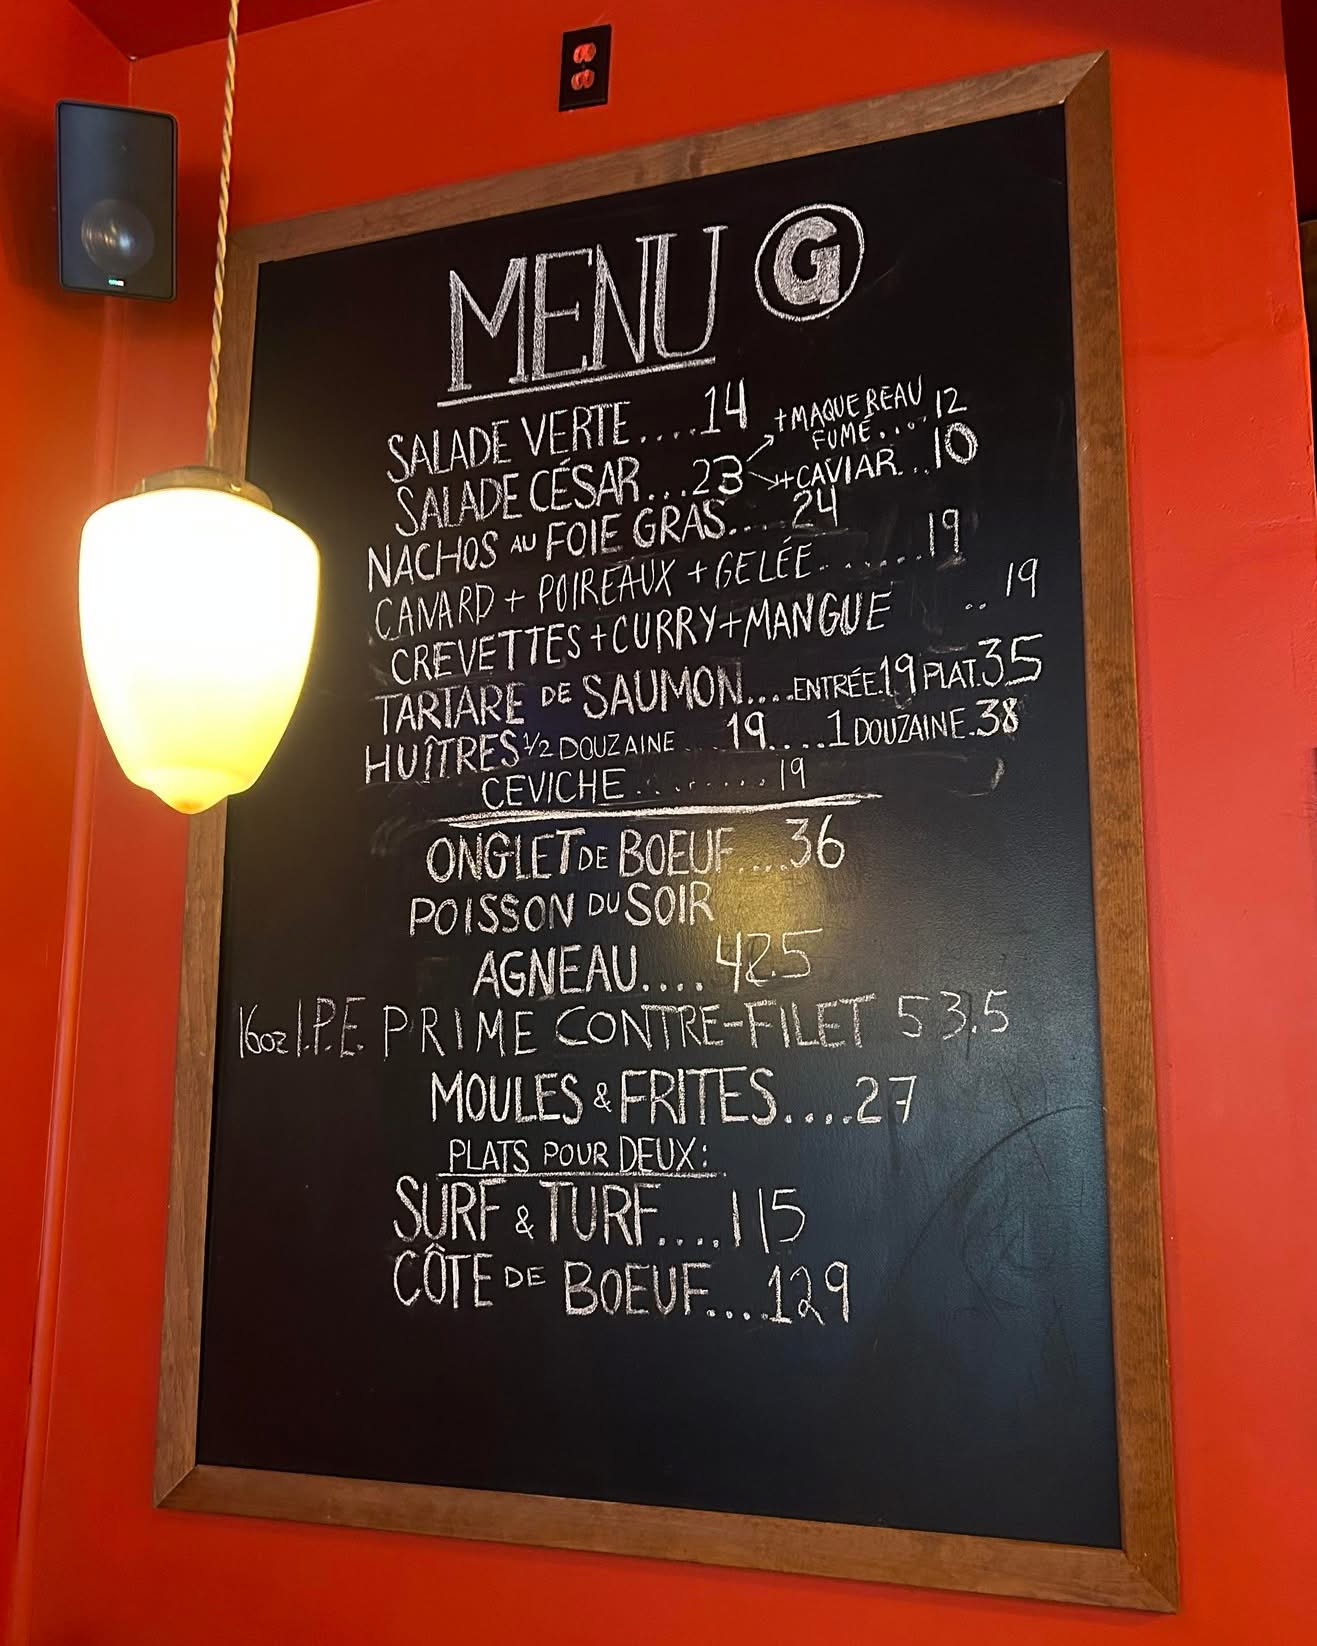 MENU G
SALADE VERTE....14
SALADE CÉSAR...23
+MAQUEREAU
FUMÉ.... 12
+CAVIAR...10
NACHOS AU FOIE GRAS.... 24
CANARD + POIREAUX + GELÉE.......19
CREVETTES+CURRY+MANGUE .. 19
TARTARE DE SAUMON....ENTRÉE.19 PLAT.35
HUÎTRES 1/2 DOUZAINE....19....1 DOUZAINE.38
CEVICHE.........19
ONGLET DE BOEUF....36
POISSON DU SOIR
AGNEAU.... 42.5
16oz I.P.E. PRIME CONTRE-FILET 53.5
MOULES & FRITES....27
PLATS POUR DEUX:
SURF & TURF....115
CÔTE DE BOEUF....129